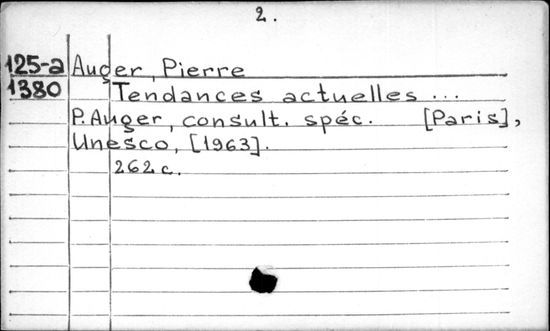 2.
125-a Auger, Pierre
1380 Tendances actuelles ...
P. Auger, consult. spéc. [Paris],
Unesco, [1963].
262 c.